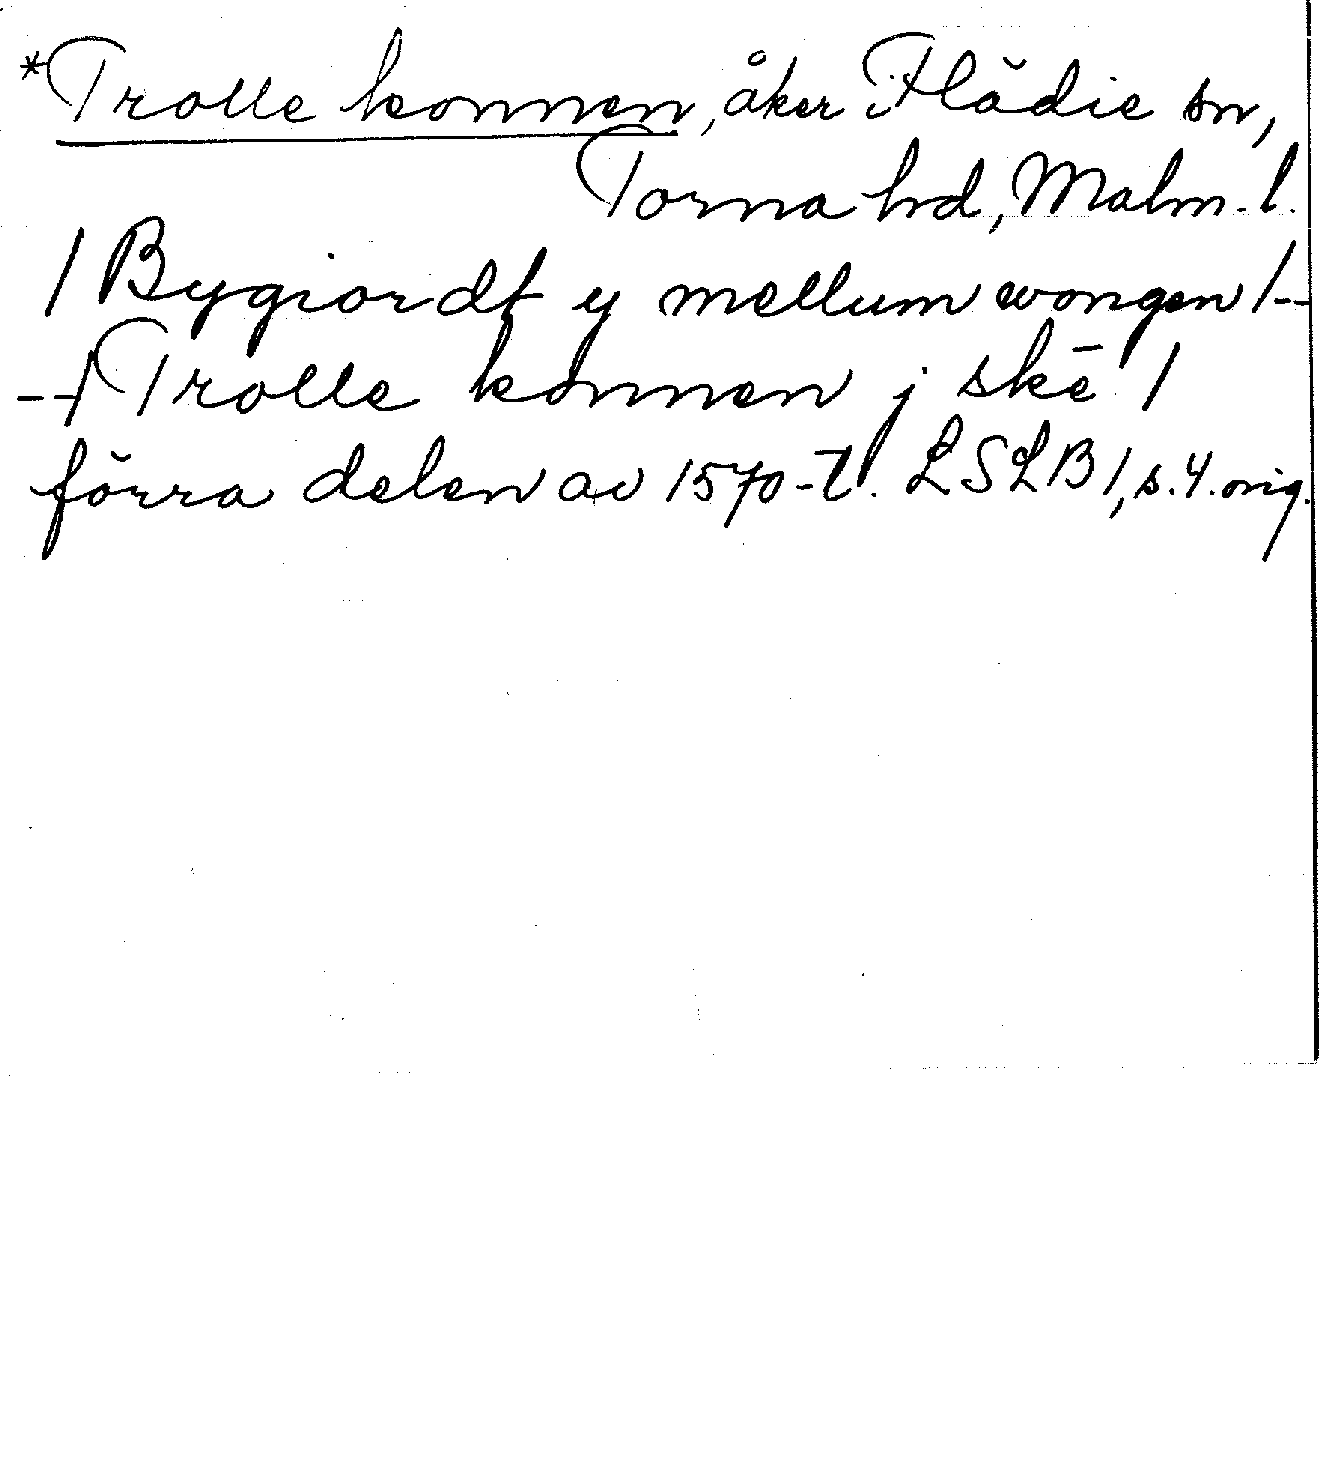 *Trolle konnen, åker i Flädie sn,
Torna hd, Malm. l.
/ Bygiordt y mellum wongen /--
--/ Trolle konnen j skē /
förra delen av 1570-t. LSLB 1, s. 4. orig.